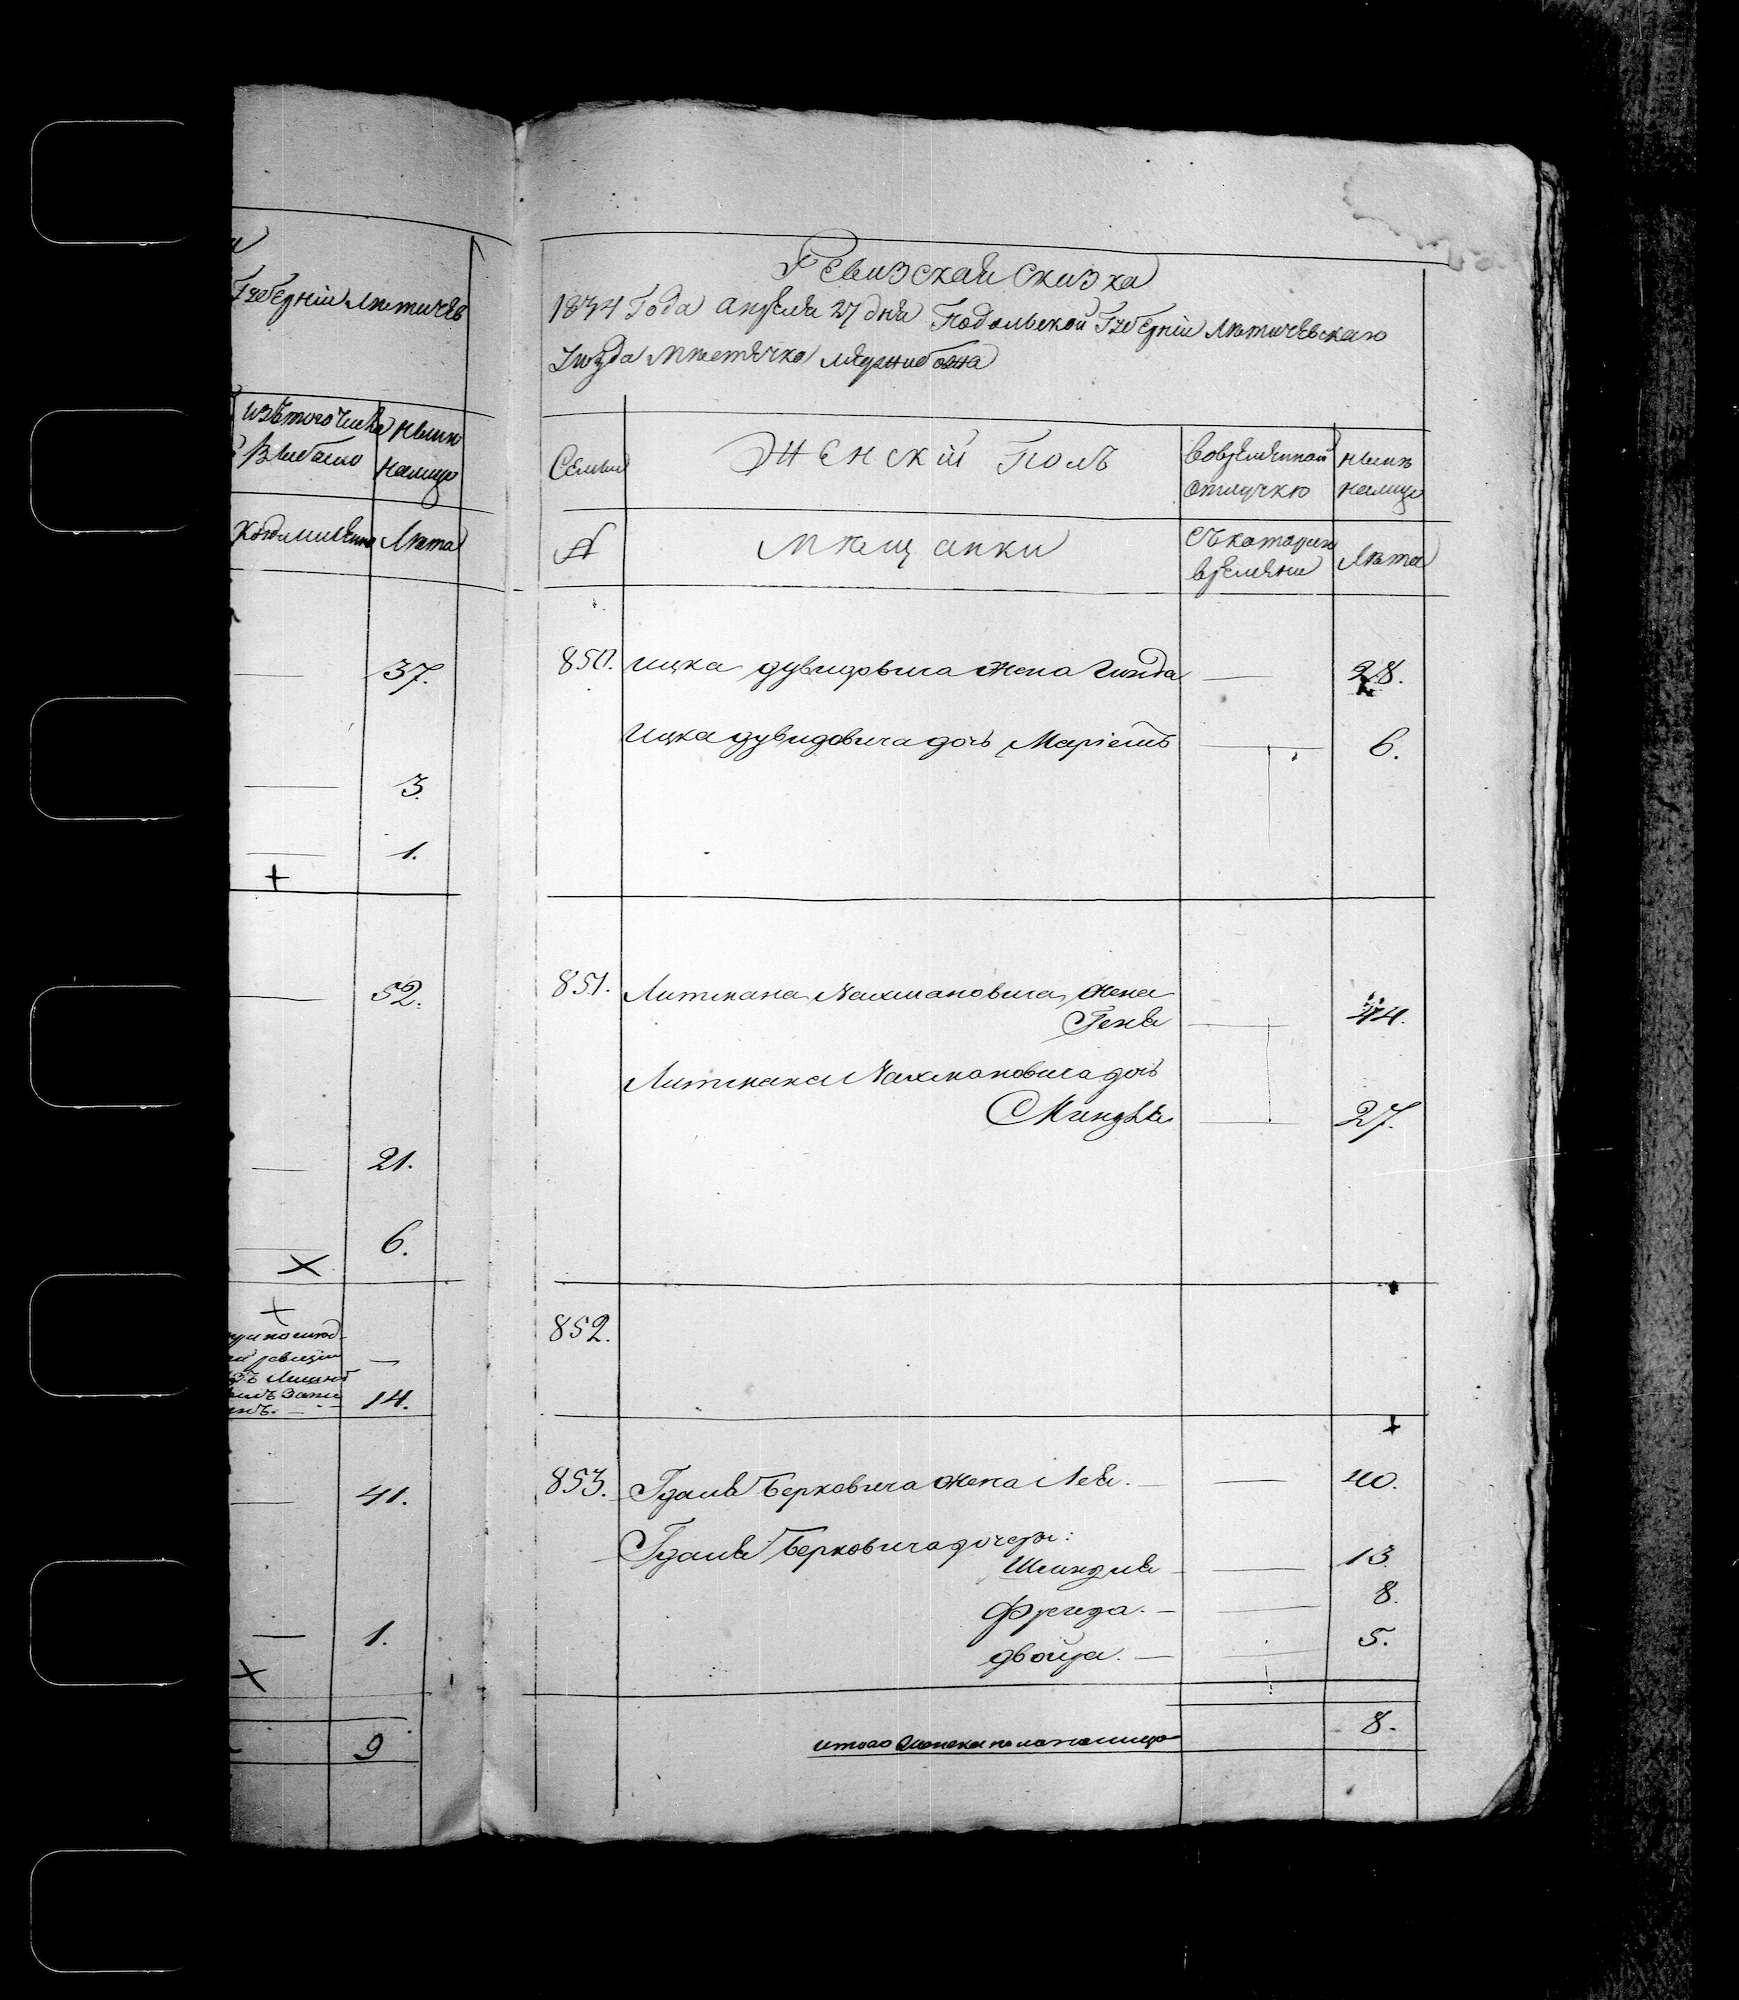 Губерніи Летичев
изъ того числа
Выбыло
ныне
на лицо
Лета
37.
3.
1.
52.
21.
6.
ревизіи
14.
41.
1.
9
Ревизская сказка
1834 Года апреля 27 дня Подольской Губерніи Летичевскаго
Уезда местечка межибожа
Семьи
Женскій Полъ
Вовременной
отлучке
ныне
налицо
№
Мещанки
Съ котораго
времени
Лета
850. Ицка дувидовича жена Гинда — 28.
Ицка дувидовича дочь Маріемъ — 6.
851. Литмана Нахмановича жена
Геня — 44.
Литмана Нахмановича дочь
Миндля — 27.
852.
853. Берковича жена Лея. — 40.
Берковича дочери:
Шейндля — 13.
Фрейда. — 8.
двойра. — 5.
итого женска пола налицо 8.